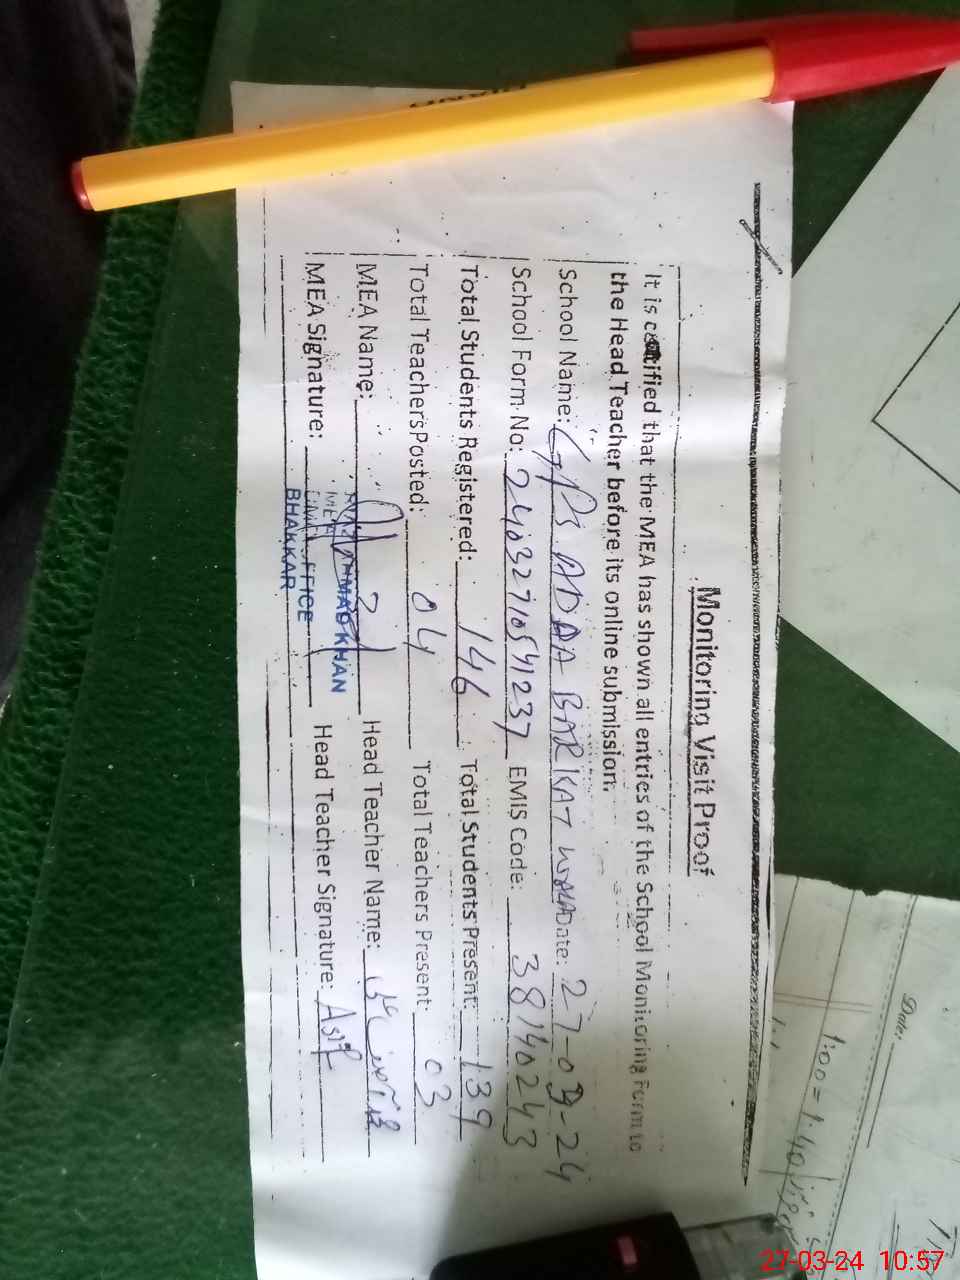 Monitoring Visit Proof
It is certified that the MEA has shown all entries of the School Monitoring Form to
the Head Teacher before its online submission.
School Name: GPS ADDA BARKAT WALA Date: 27-03-24
School Form No: 24032710541237 EMIS Code: 38140243
Total Students Registered: 146 Total Students Present: 139
Total Teachers Posted: 04 Total Teachers Present: 03
MEA Name: Head Teacher Name:
AHMAD KHAN
MEA
OFFICE
BHAKKAR
MEA Signature: Head Teacher Signature: Asif
Date:
1:00 = 1:40
27-03-24 10:57